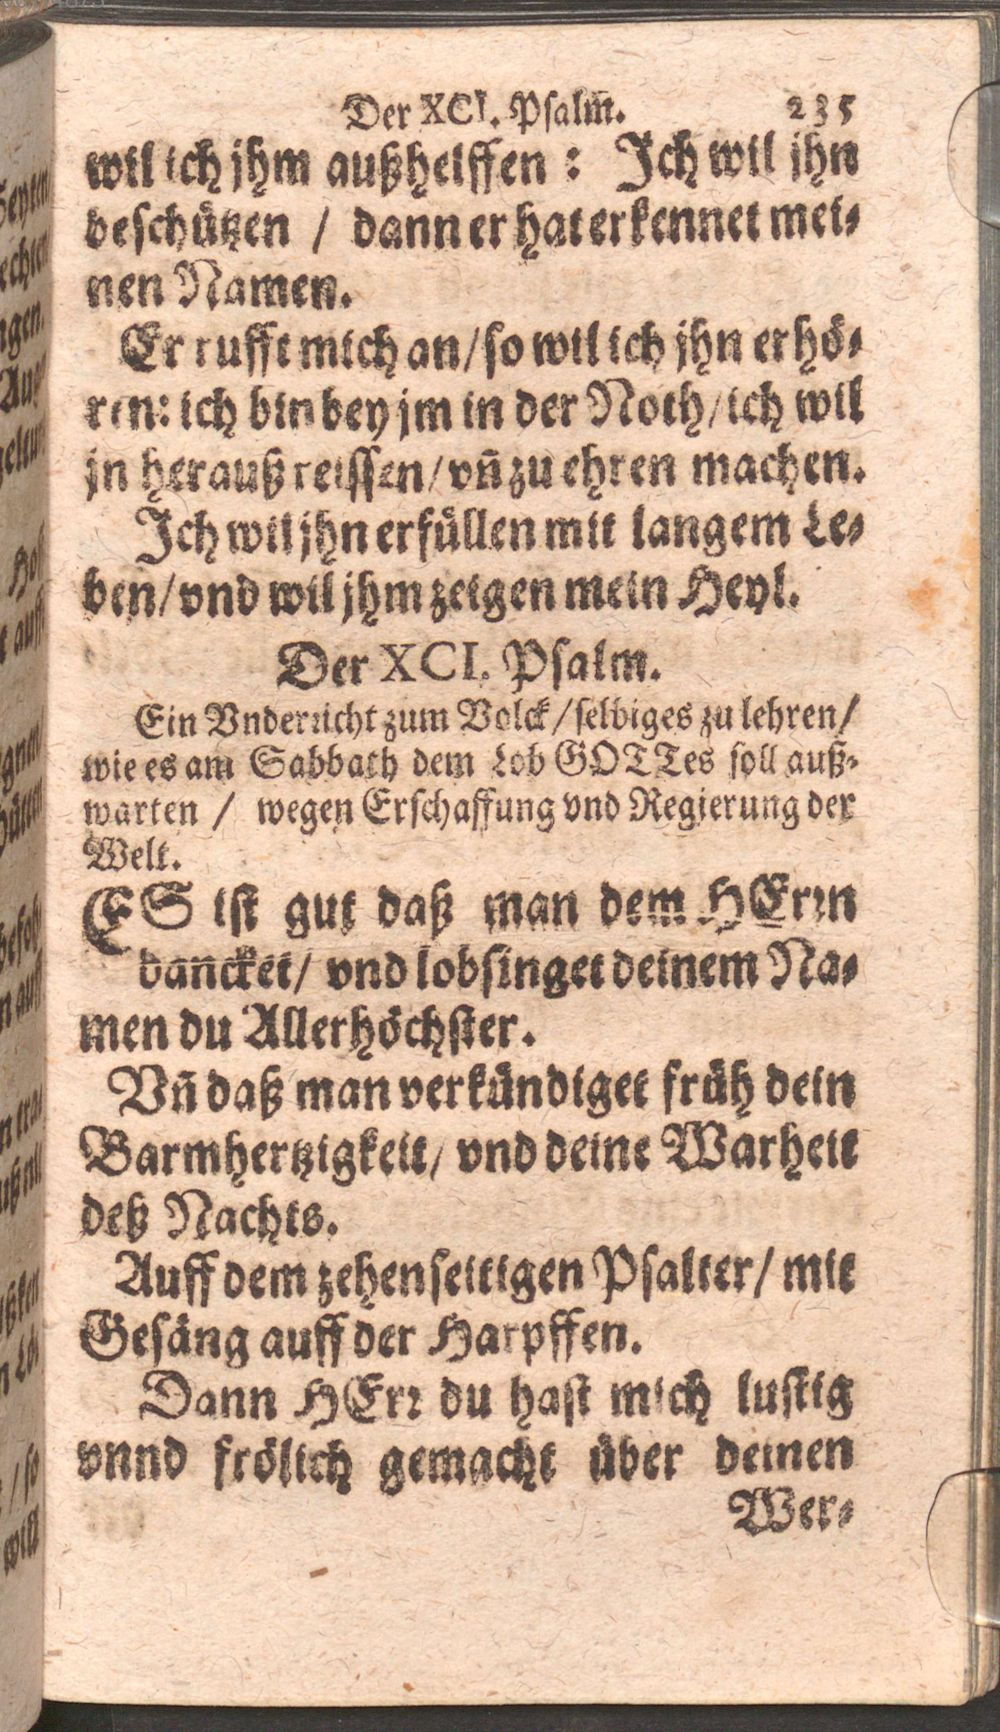 Der XCI. Psalm̃. 235
wil ich jhm außhelffen : Ich wil jhn
beschützen / dann er hat erkennet mei-
nen Namen.
Er rufft mich an/ so wil ich jhn erhö-
ren: ich bin bey jm in der Noth/ ich wil
jn herauß reissen/ vn̄ zu ehren machen.
Ich wil jhn erfüllen mit langem Le-
ben/ vnd wil jhm zeigen mein Heyl.
Der XCI. Psalm.
Ein Vnderricht zum Volck / selbiges zu lehren /
wie es am Sabbath dem Lob GOTTes soll auß-
warten / wegen Erschaffung vnd Regierung der
Welt.
ES ist gut daß man dem HErrn
dan̄cket / vnd lobsinget deinem Na-
men du Allerhöchster.
Vn̄ daß man verkündiget früh dein
Barmhertzigkeit/ vnd deine Warheit
deß Nachts.
Auff dem zehenseitigen Psalter/ mit
Gesäng auff der Harpffen.
Dann HErr du hast mich lustig
vnnd frölich gemacht über deinen
Wer-